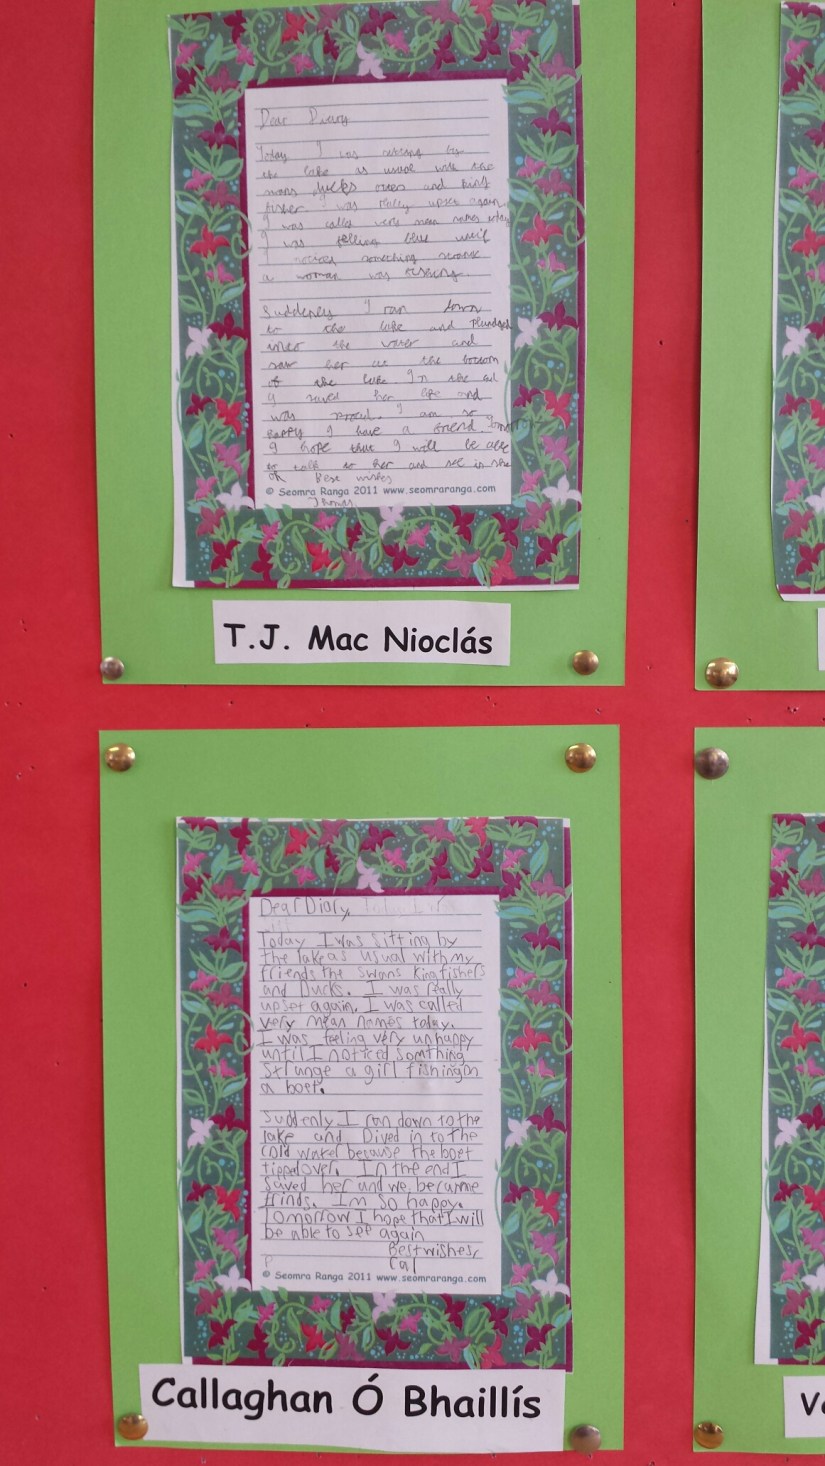 Dear Diary
Today I was resting by
the lake as usual with the
swans ducks and king
fisher I was really upset again
I was called very mean names today
I was felling blue until
I noticed something strange
a woman was fishing.
Suddenly I ran down
to the lake and plundged
into the water and
saw her at the bottom
of the lake. In the end
I saved her life and
was proud. I am so
happy I have a friend Tomorrow
I hope that I will be able
to talk to her and see is she
ok Best wishes
© Seomra Ranga 2011 www.seomraranga.com
Thomas
T.J. Mac Nioclás
Dear Diary,
Today I was sitting by
the lake as usual with my
friends the swans kingfishers
and Ducks. I was really
upset again. I was called
very mean names today.
I was feeling very unhappy
until I noticed somthing
strange a girl fishing on
a boet.
Suddenly I ran down to the
lake and Dived in to the
cold water because the boet
tipped over. In the end I
saved her and we became
frinds. Im so happy.
tomorrow I hope that I will
be able to see again
Best wishes,
Cal
© Seomra Ranga 2011 www.seomraranga.com
Callaghan Ó Bhaillís